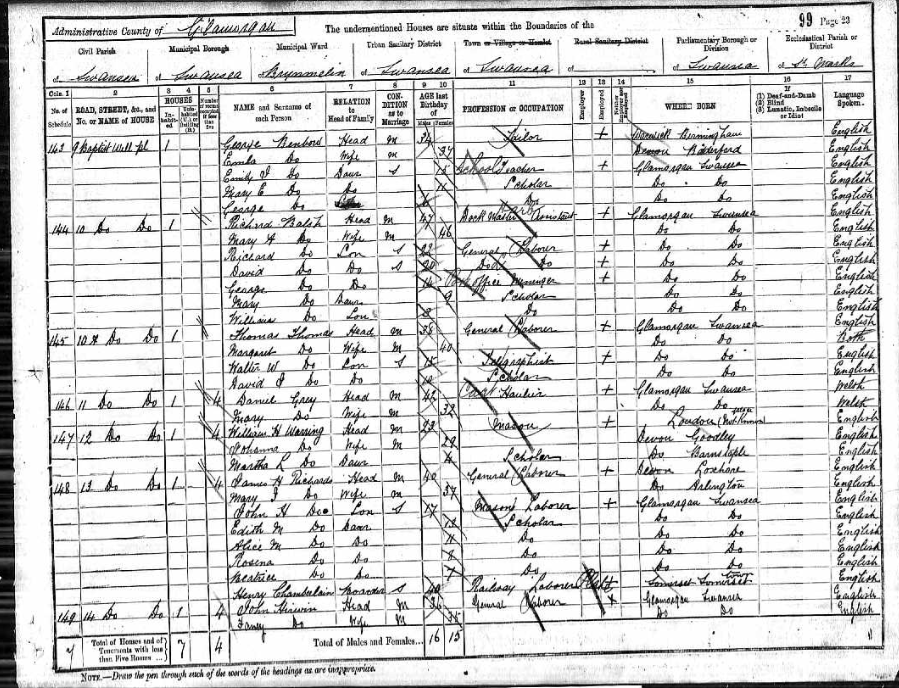 Administrative County of Glamorgan The undermentioned Houses are situate within the Boundaries of the 99 Page 23
Civil Parish Municipal Borough Municipal Ward Urban Sanitary District Town or Village or Hamlet Rural Sanitary District Parliamentary Borough or Division Ecclesiastical Parish or District
of Swansea of Swansea Brynmelin of Swansea of Swansea of of Swansea of St. Marks
Coln. 1 2 3 4 5 6 7 8 9 10 11 12 13 14 15 16 17
No. of Schedule ROAD, STREET, &c., and No. or NAME of HOUSE HOUSES NAME and Surname of each Person RELATION to Head of Family CONDITION as to Marriage AGE last Birthday of PROFESSION or OCCUPATION Employer Employed WHERE BORN (1) Deaf-and-Dumb (2) Blind (3) Lunatic, Imbecile or Idiot Language Spoken
143 9 Baptist Well Pl 1 George Head M 34 Tailor + Warwick Birmingham English
Do Wife M 37 Devon Bideford English
Emily J Do Daur S 15 School Teacher + Glamorgan Swansea English
Mary E Do Do 11 Scholar Do Do English
George Do Do Do Do English
144 10 Do Do 1 Richard Walsh Head M 47 Dock + Glamorgan Swansea English
Mary A Do Wife M 46 Do Do English
Richard Do Son S 22 General Laborer + Do Do English
David Do Do S 20 Dock Do + Do Do English
George Do Do Office Messenger + Do Do English
Mary Do Daur 9 Scholar Do Do English
William Do Son Do Do Do English
145 10A Do Do 1 Thomas Thomas Head M 38 General Laborer + Glamorgan Swansea English
Margaret Do Wife M 40 Do Do Both
Walter W Do Son S 15 Telegraphist + Do Do English
David J Do Do Scholar Do Do English
146 11 Do Do 1 4 Daniel Grey Head M 42 Haulier + Glamorgan Swansea Welsh
Mary Do Wife M 32 Do Do Welsh
147 12 Do Do 1 4 William H Warring Head M Mason + London English
Johanna Do Wife M 29 Devon Goodley English
Martha L Do Daur 4 Scholar Do Barnstaple English
148 13 Do Do 1 4 James H Richards Head M 40 General Laborer + Devon Loxhore English
Mary J Do Wife M 37 Do Arlington English
John H Do Son S 17 Masons Laborer + Glamorgan Swansea English
Edith M Do Daur 13 Scholar Do Do English
Alice M Do Do 11 Do Do Do English
Rosina Do Do 8 Do Do Do English
Beatrice Do Do 7 Do Do Do English
Henry Chamberlain Boarder S 40 Railway Laborer Somerset English
149 14 Do Do 1 4 John Head M 36 General Laborer Glamorgan Swansea English
Fanny Do Wife M 35 Do Do English
7 Total of Houses and of Tenements with less than Five Houses 7 4 Total of Males and Females... 16 15
NOTE.—Draw the pen through such of the words of the headings as are inappropriate.